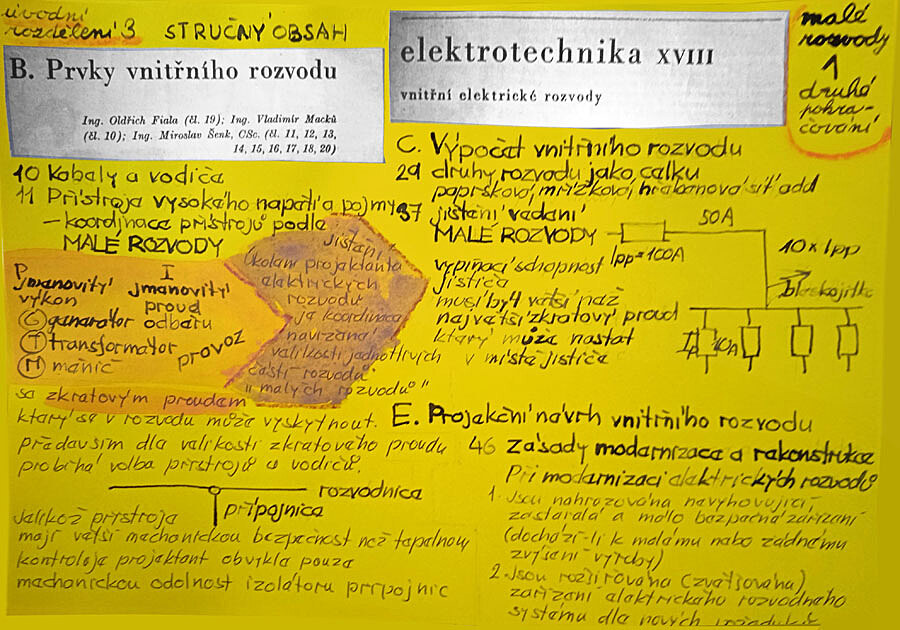 úvodní
rozdělení 3 STRUČNÝ OBSAH
B. Prvky vnitřního rozvodu
Ing. Oldřich Fiala (čl. 19); Ing. Vladimír Macků
(čl. 10); Ing. Miroslav Šenk, CSc. (čl. 11, 12, 13,
14, 15, 16, 17, 18, 20)
10 Kabely a vodiče
11 Přístroje vysokého napětí a pojmy
– koordinace přístrojů podle
MALÉ ROZVODY
jištění
Úkolem projektanta
elektrických
rozvodů
je koordinace
navržená
velikosti jednotlivých
částí rozvodů
"malých rozvodů"
Pjmenovitý
výkon
I
jmenovitý
proud
odběru
G generátor
T transformátor
M měnič
provoz
se zkratovým proudem
který se v rozvodu může vyskytnout.
především dle velikosti zkratového proudu
probíhá volba přístrojů a vodičů.
rozvodnice
přípojnice
Jelikož přístroje
mají větší mechanickou bezpečnost než tepelnou
kontroluje projektant obvykle pouze
mechanickou odolnost izolátorů přípojnic
elektrotechnika XVIII
vnitřní elektrické rozvody
malé
rozvody
druhé
pokra-
čování
C. Výpočet vnitřního rozvodu
29 druhy rozvodu jako celku
paprsková, mřížková, hřebenová síť atd
37 jištění vedení
MALÉ ROZVODY
50A
Ipp=100A
10x Ipp
vypínací schopnost
jističe
musí být větší než
největší zkratový proud
který může nastat
v místě jističe
E. Projekční návrh vnitřního rozvodu
46 Zásady modernizace a rekonstrukce
Při modernizaci elektrických rozvodů
1. Jsou nahrazována nevyhovující,
zastaralá a málo bezpečná zařízení
(dochází-li k malému nebo žádnému
zvýšení výroby)
2. Jsou rozšiřována (zvětšována)
zařízení elektrického rozvodného
systému dle nových